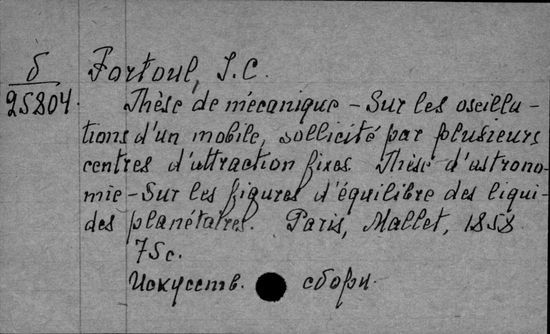 б Fortoul, J.C.
25804. Thèse de mécanique - Sur les oscilla-
tions d'un mobile, sollicité par plusieurs
centres d'attraction fixes. Thèse d'astrono-
mie - Sur les figures d'équilibre des liqui-
des planétaires. Paris, Mallet, 1858
75c.
Искусств. сборн.